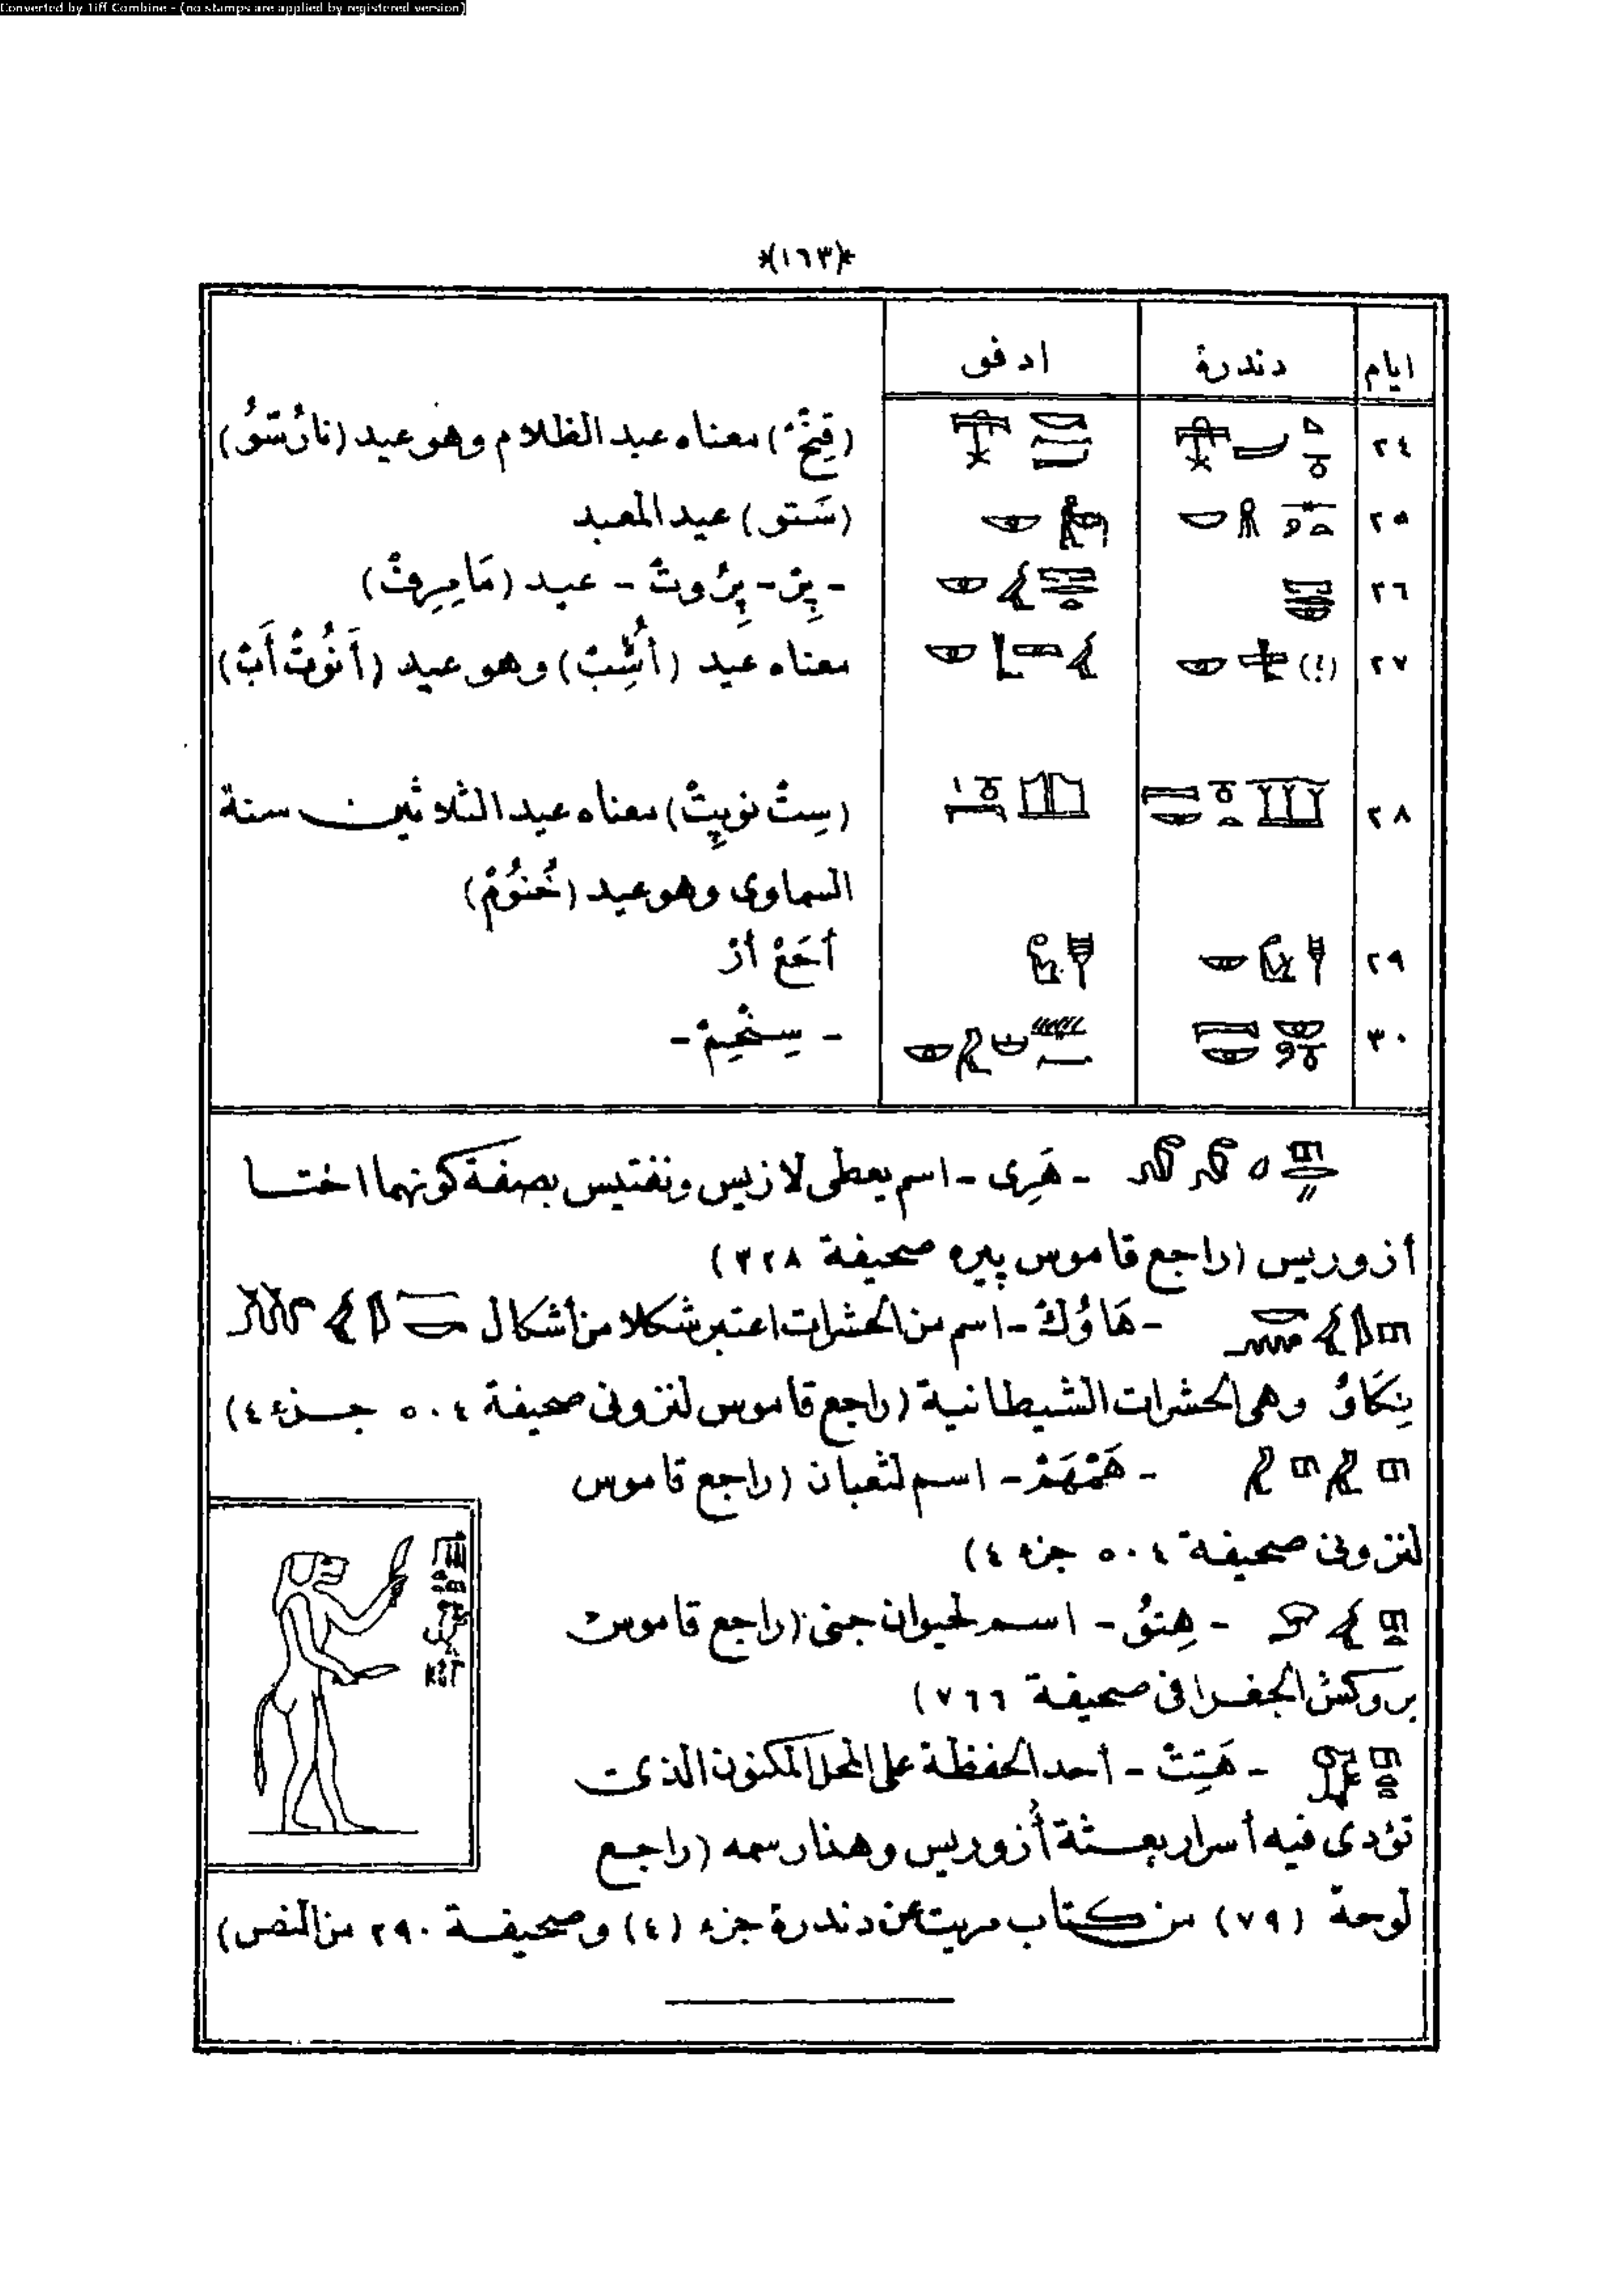 Converted by Tiff Combine - (no stamps are applied by registered version)
*(١٦٣)*
ايام دندرة ادفو
٢٤ (قِنْخ) معناه عيد الظلام وهو عيد (نارُسّوُ)
٢٥ (سَتو) عيد المعبد
٢٦ - پِرْ - پِرُوتْ - عيد
٢٧ (؟) معناه عيد (أُشِبْ) وهو عيد (أَنوُتْ أَبْ)
٢٨ (سِتْ نوپِتْ) معناه عيد الثلاثين سنة
السماوى وهو عيد (خُنوُمْ)
٢٩ أَخَعْ أرْ
٣٠ - سِخْمْ -
- هَرِى - اسم يعطى لازيس ونفتيس بصفة كونهما اختا
أزوريس (راجع قاموس پيره صحيفة ٣٢٨)
- هَاوُكْ - اسم من الحشرات اعتبر شكلا من أشكال
نِكَاوْ وهى الحشرات الشيطانية (راجع قاموس لنزونى صحيفة ٥٠٤ جزء ٤)
- هَمْهَمْ - اسم لثعبان (راجع قاموس
لنزونى صحيفة ٥٠٤ جزء ٤)
- هِتوُ - اسم لحيوان جنى (راجع قاموس
بروكش الجغرافى صحيفة ٧٦٦)
- هَتِتْ - أحد الحفظة على المحل المكنون الذى
تؤدى فيه أسرار بعثة أُزوريس وهذا رسمه (راجع
لوحة (٧٩) من كتاب مريت عن دندرة جزء (٤) وصحيفة ٢٩٠ من النص)